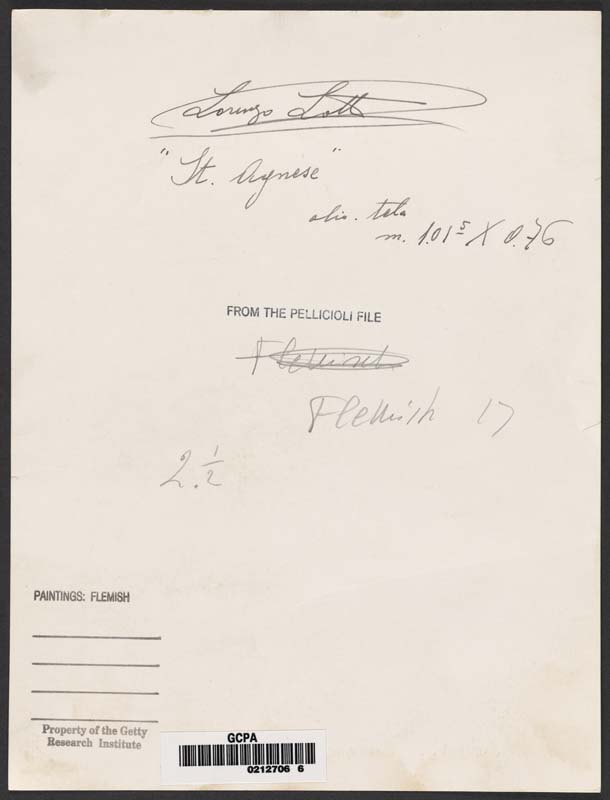 Lorenzo Lotto
"St. Agnese"
olio. tela
m. 1.01⁵ X 0.76
FROM THE PELLICIOLI FILE
Flemish
Flemish 17
2.½
PAINTINGS: FLEMISH
Property of the Getty
Research Institute
GCPA
0212706 6